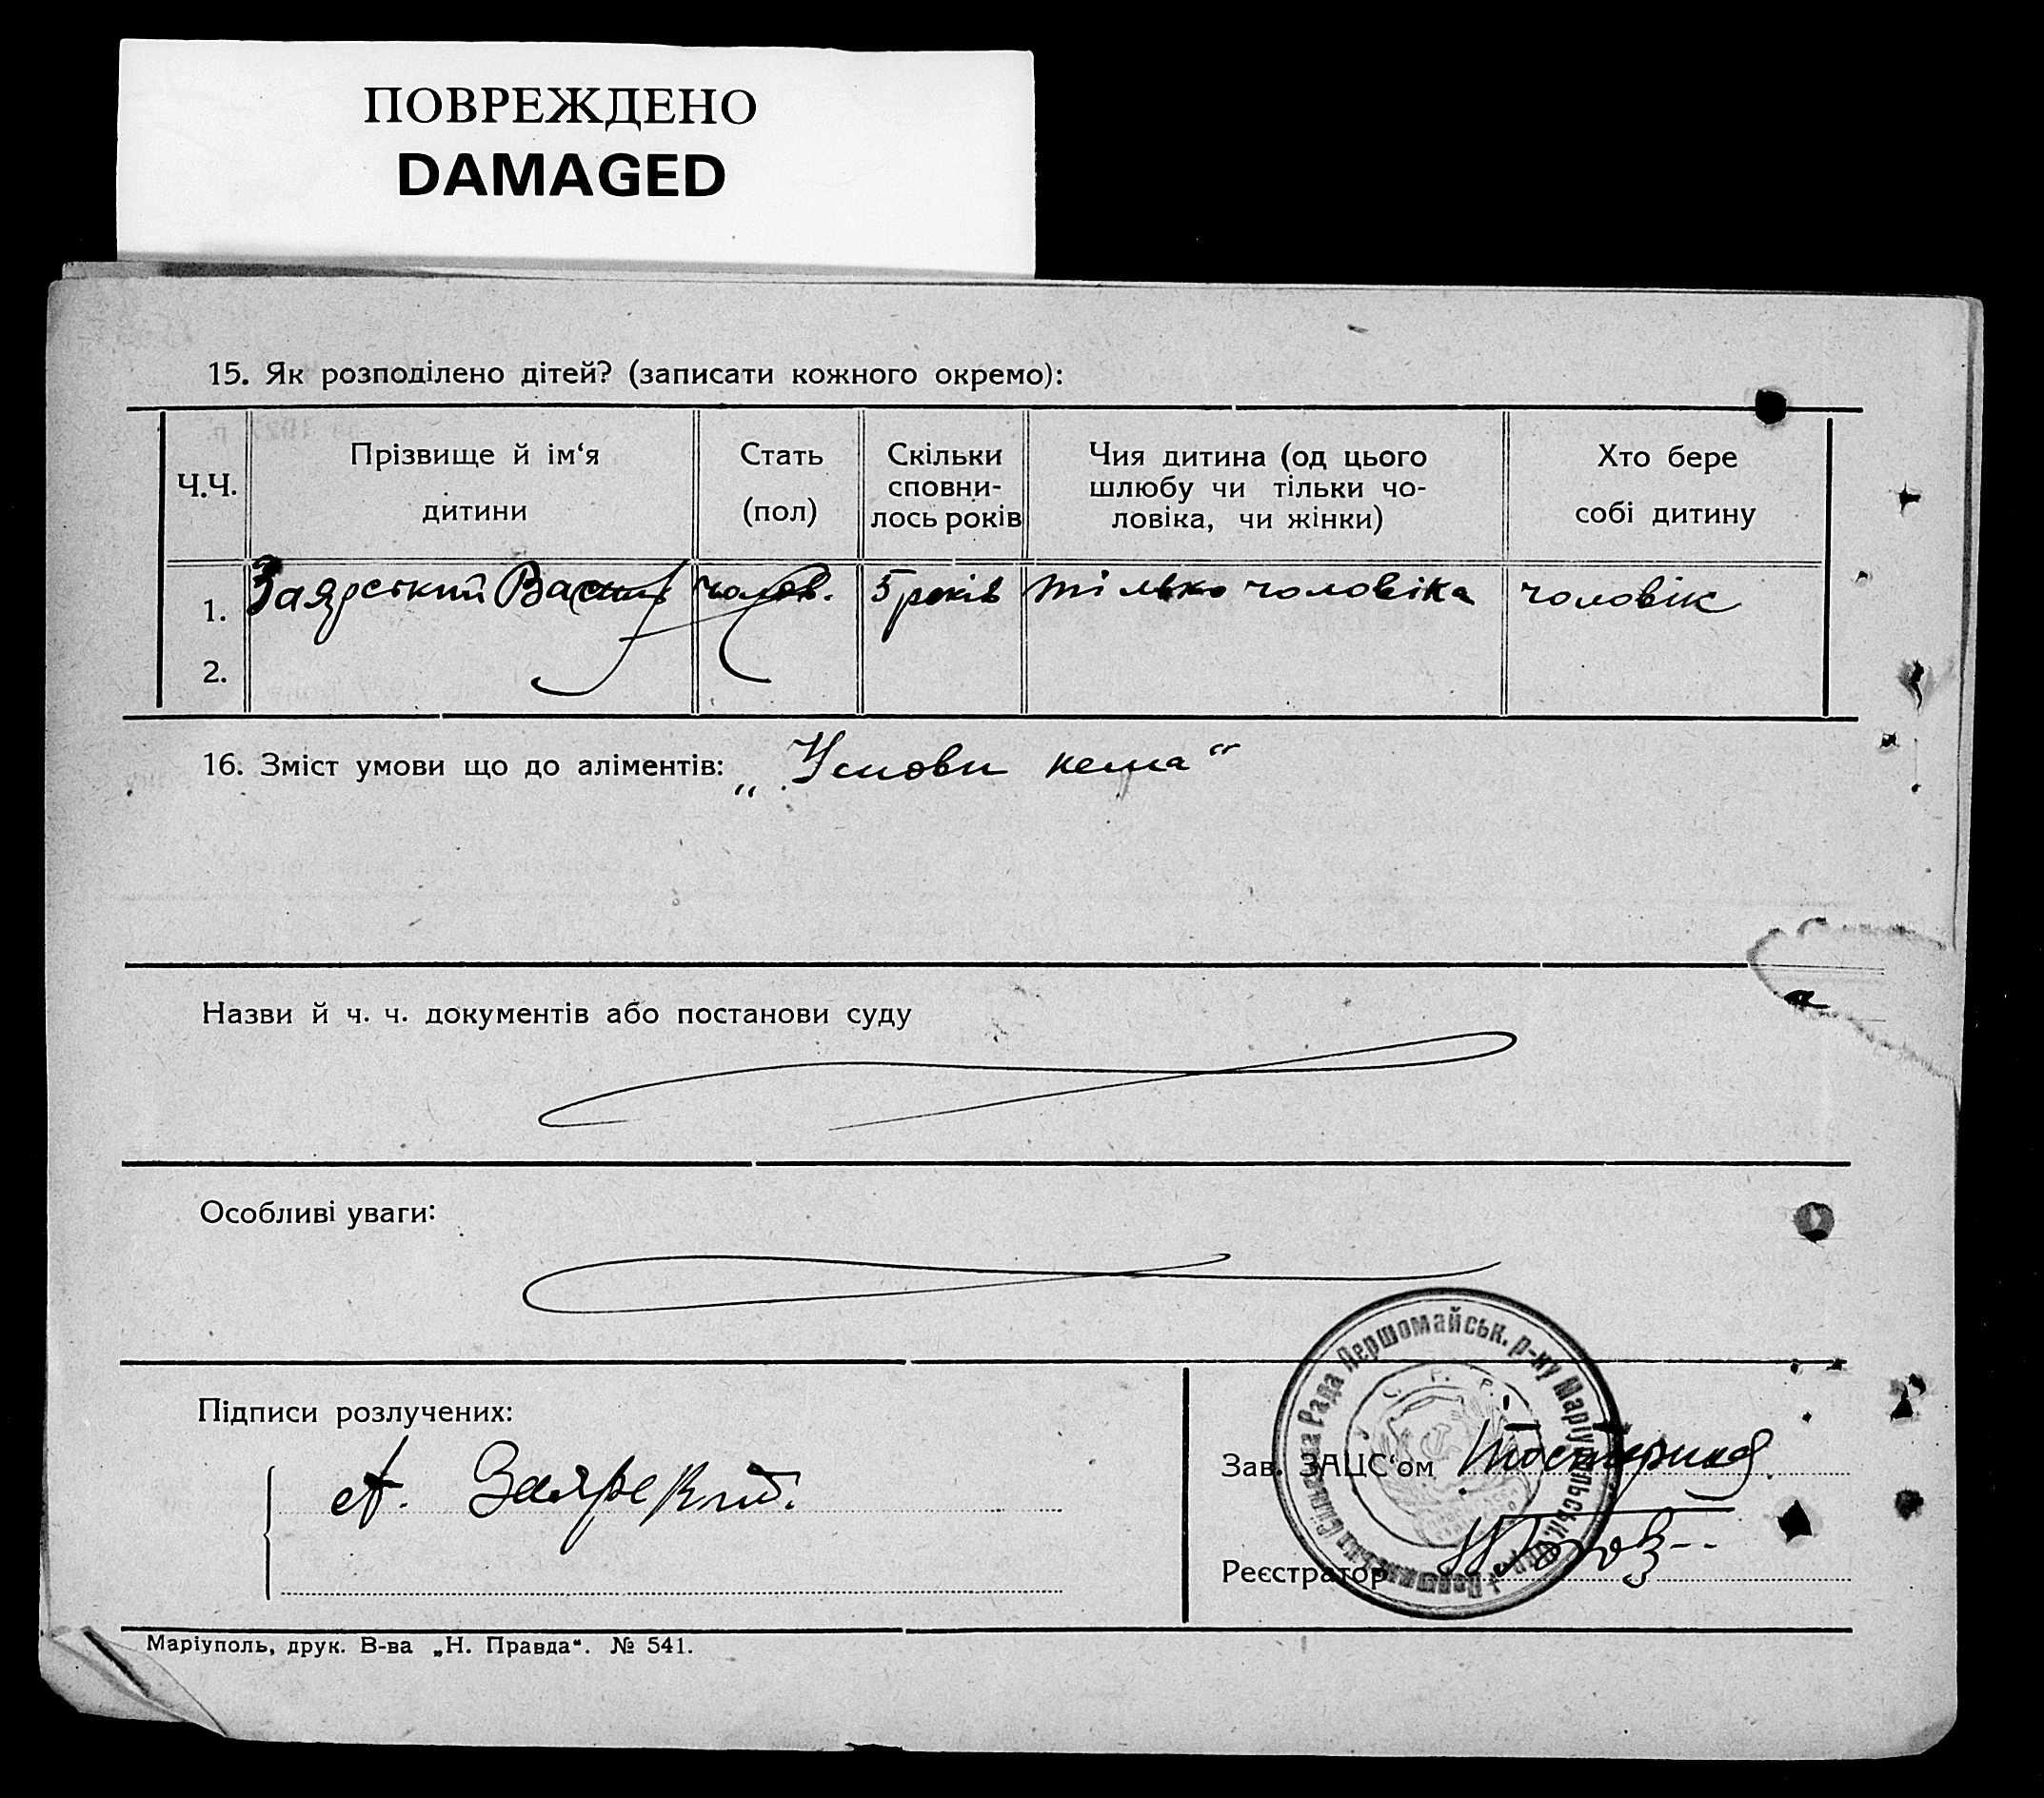 ПОВРЕЖДЕНО
DAMAGED
15. Як розподілено дітей? (записати кожного окремо):
Ч.Ч.
Прізвище й ім‘я
дитини
Стать
(пол)
Скільки
сповни-
лось років
Чия дитина (од цього
шлюбу чи тільки чо-
ловіка, чи жінки)
Хто бере
собі дитину
1. Заярський Василь чолов. 5 років тілько чоловіка чоловік
2.
16. Зміст умови що до аліментів: „Умови нема“
Назви й ч. ч. документів або постанови суду
Особливі уваги:
Підписи розлучених:
А. Заярский.
Зав. ЗАЦС‘ом
Реєстратор
Сільська Рада Першомайськ. р-ну Маріупільськ.
У. С. Р. Р.
Маріуполь, друк. В-ва „Н. Правда“. № 541.